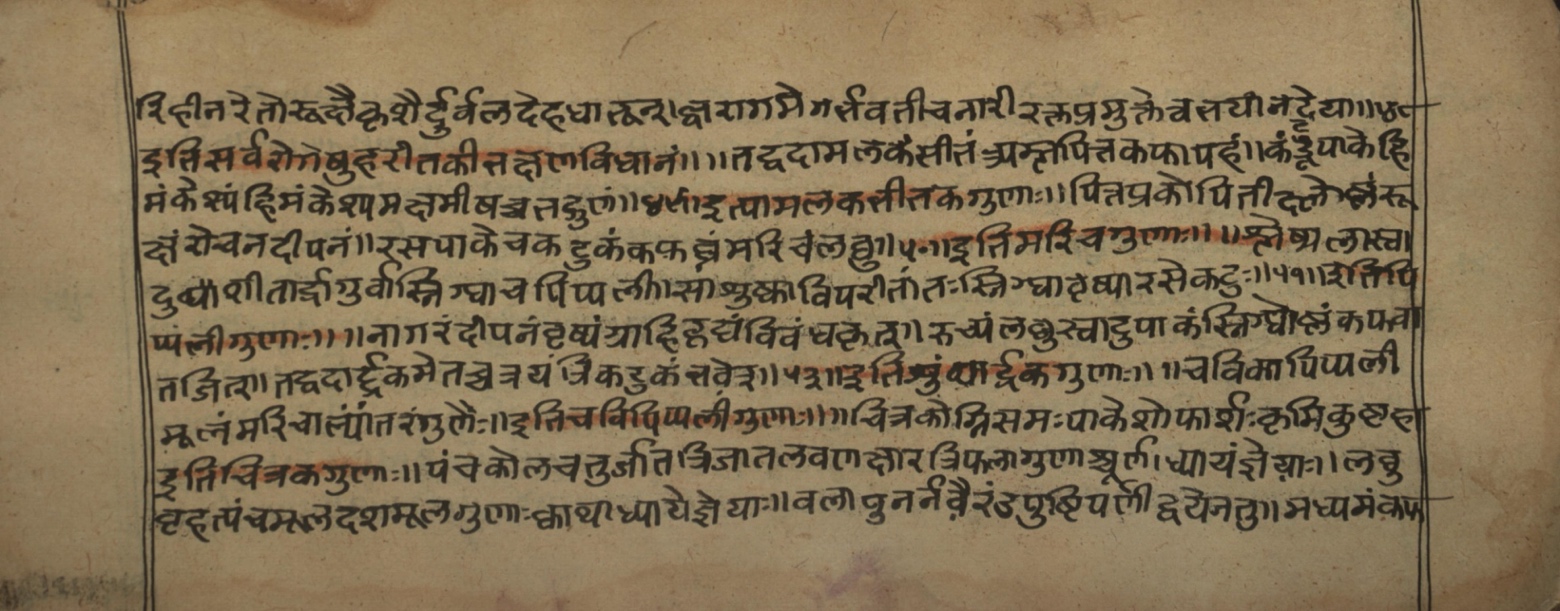 रिहीनरेतोरूक्षैकृशैर्दुर्वलदेहधातून्॥ज्वरागमेगर्भवतीचनारीरक्तप्रमुक्तेवभयानदेया॥४८
इतिसर्वरोगेषुहरीतकीभक्षणविधानं॥॥तद्वदामलकंसीतंअम्लपित्तकफापहं॥कंडूपाकेहि
मंकेश्यंहिमंकेश्यमक्षमीषच्चतद्गुणं॥४९॥इत्यामलकसीतकगुणाः॥पित्तप्रकोपितीक्ष्णोष्णंरू
क्षंरोचनदीपनं॥रसपाकेचकटुकंकफघ्नंमरिचंलघु॥५०॥इतिमरिचगुणाः॥॥श्लेष्मलास्वा
दुष्पाशीतार्द्रागुर्वीस्निग्धाचपिप्पली॥साशुष्काविपरीतातःस्निग्धावृष्यारसेकटुः॥५१॥इतिपि
प्पंलीगुणाः॥॥नागरंदीपनंवृष्यंग्राहिहृद्यंविवंधकृतनु॥रुच्यंलघुस्वादुपाकंस्निग्धोष्णंकफवा
तजित्॥तद्वदार्द्रकमेतच्चत्रयंत्रिकटुकंभवेत्॥५३॥इतिशुंठ्यार्द्रकगुणाः॥॥चविकापिप्पली
मूलंमरिचाल्पांतरंगुणैः॥इतिचविपिप्पलीगुणाः॥॥चित्रकोग्निसमःपाकेशोफार्शःकृमिकुष्ठहा
इतिचित्रकगुणाः॥पंचकोलचतुर्जातत्रिजातलवणक्षारत्रिफलागुणाश्चूर्णाध्यायंज्ञेयाः॥लघु
बृहत्पंचमूलदशमूलगुणाःक्वाथाध्यायेज्ञेयाः॥वलापुनर्नवैरंडपुष्टिपर्णीद्वयेनतु॥मध्यमंकफ